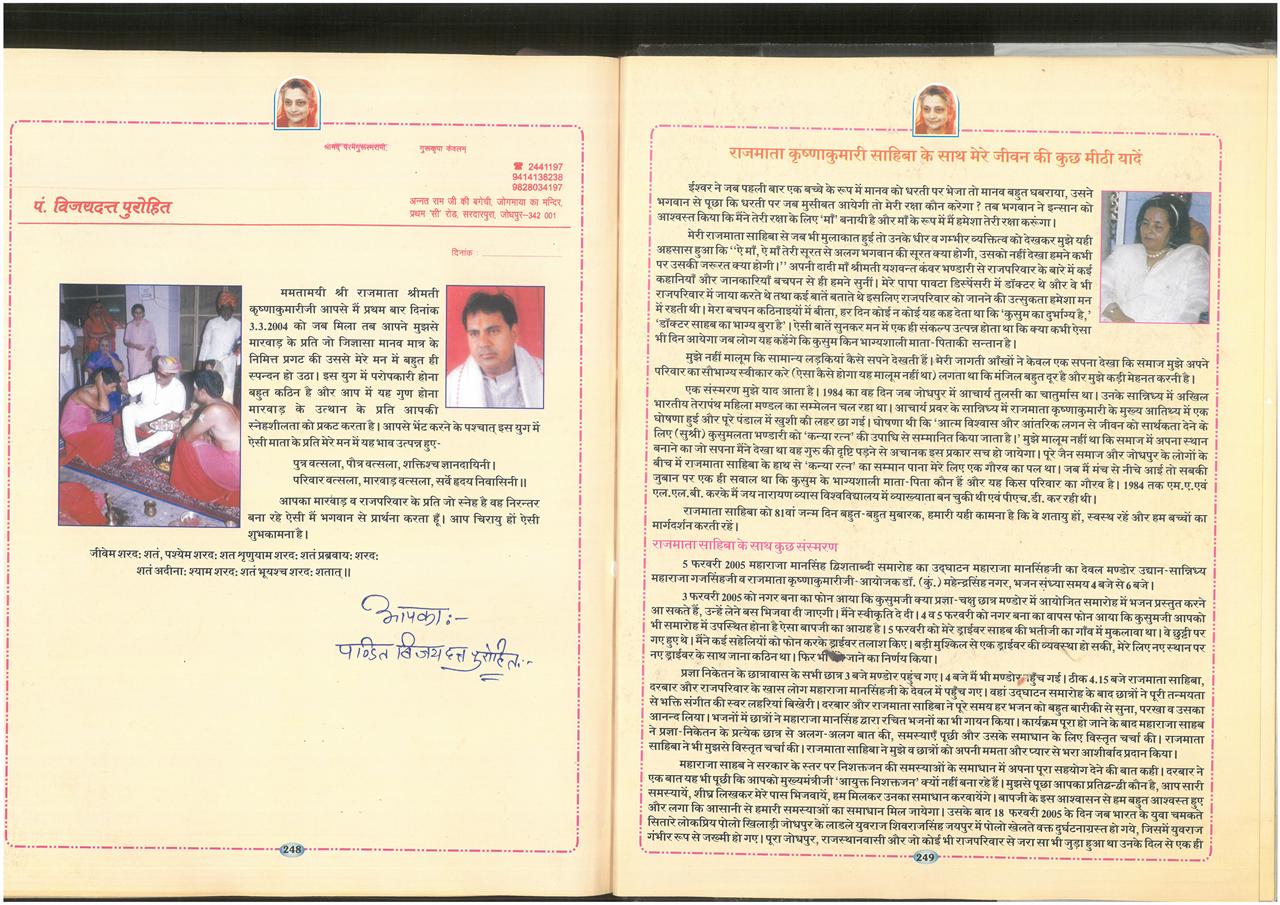 श्रीमद् परमगुरूस्मरामी गुरूकृपा केवलम्
☎ 2441197
9414136238
9828034197
पं. विजयदत्त पुरोहित
अन्नत राम जी की बगेची, जोगमाया का मन्दिर,
प्रथम 'सी' रोड, सरदारपुरा, जोधपुर–342 001
दिनांक :
ममतामयी श्री राजमाता श्रीमती
कृष्णाकुमारीजी आपसे में प्रथम बार दिनांक
3.3.2004 को जब मिला तब आपने मुझसे
मारवाड़ के प्रति जो जिज्ञासा मानव मात्र के
निमित्त प्रगट की उससे मेरे मन में बहुत ही
स्पन्दन हो उठा। इस युग में परोपकारी होना
बहुत कठिन है और आप में यह गुण होना
मारवाड़ के उत्थान के प्रति आपकी
स्नेहशीलता को प्रकट करता है। आपसे भेंट करने के पश्चात् इस युग में
ऐसी माता के प्रति मेरे मन में यह भाव उत्पन्न हुए-
पुत्र वत्सला, पौत्र वत्सला, शक्तिश्च ज्ञानदायिनी।
परिवार वत्सला, मारवाड़ वत्सला, सर्वे हृदय निवासिनी॥
आपका मारवाड़ व राजपरिवार के प्रति जो स्नेह है वह निरन्तर
बना रहे ऐसी मैं भगवान से प्रार्थना करता हूँ। आप चिरायु हों ऐसी
शुभकामना है।
जीवेम शरद: शतं, पश्येम शरद: शत श्रृणुयाम शरद: शतं प्रब्रवाय: शरद:
शतं अदीना: श्याम शरद: शतं भूयश्च शरद: शतात्॥
आपका:-
पण्डित विजयदत्त पुरोहित:-
248
राजमाता कृष्णाकुमारी साहिबा के साथ मेरे जीवन की कुछ मीठी यादें
ईश्वर ने जब पहली बार एक बच्चे के रूप में मानव को धरती पर भेजा तो मानव बहुत घबराया, उसने
भगवान से पूछा कि धरती पर जब मुसीबत आयेगी तो मेरी रक्षा कौन करेगा ? तब भगवान ने इन्सान को
आश्वस्त किया कि मैंने तेरी रक्षा के लिए 'माँ' बनायी है और माँ के रूप में मैं हमेशा तेरी रक्षा करूंगा।
मेरी राजमाता साहिबा से जब भी मुलाकात हुई तो उनके धीर व गम्भीर व्यक्तित्व को देखकर मुझे यही
अहसास हुआ कि ''ऐ माँ, ऐ माँ तेरी सूरत से अलग भगवान की सूरत क्या होगी, उसको नहीं देखा हमने कभी
पर उसकी जरूरत क्या होगी।'' अपनी दादी माँ श्रीमती यशवन्त कंवर भण्डारी से राजपरिवार के बारे में कई
कहानियाँ और जानकारियाँ बचपन से ही हमने सुनीं। मेरे पापा पावटा डिस्पेंसरी में डॉक्टर थे और वे भी
राजपरिवार में जाया करते थे तथा कई बातें बताते थे इसलिए राजपरिवार को जानने की उत्सुकता हमेशा मन
में रहती थी। मेरा बचपन कठिनाइयों में बीता, हर दिन कोई न कोई यह कह देता था कि 'कुसुम का दुर्भाग्य है,'
'डॉक्टर साहब का भाग्य बुरा है'। ऐसी बातें सुनकर मन में एक ही संकल्प उत्पन्न होता था कि क्या कभी ऐसा
भी दिन आयेगा जब लोग यह कहेंगे कि कुसुम किन भाग्यशाली माता-पिताकी सन्तान है।
मुझे नहीं मालूम कि सामान्य लड़कियां कैसे सपने देखती हैं। मेरी जागती आँखों ने केवल एक सपना देखा कि समाज मुझे अपने
परिवार का सौभाग्य स्वीकार करे (ऐसा कैसे होगा यह मालूम नहीं था) लगता था कि मंजिल बहुत दूर है और मुझे कड़ी मेहनत करनी है।
एक संस्मरण मुझे याद आता है। 1984 का वह दिन जब जोधपुर में आचार्य तुलसी का चातुर्मास था। उनके सान्निध्य में अखिल
भारतीय तेरापंथ महिला मण्डल का सम्मेलन चल रहा था। आचार्य प्रवर के सान्निध्य में राजमाता कृष्णाकुमारी के मुख्य आतिथ्य में एक
घोषणा हुई और पूरे पंडाल में खुशी की लहर छा गई। घोषणा थी कि 'आत्म विश्वास और आंतरिक लगन से जीवन को सार्थकता देने के
लिए (सुश्री) कुसुमलता भण्डारी को 'कन्या रत्न' की उपाधि से सम्मानित किया जाता है।' मुझे मालूम नहीं था कि समाज में अपना स्थान
बनाने का जो सपना मैंने देखा था वह गुरु की दृष्टि पड़ने से अचानक इस प्रकार सच हो जायेगा। पूरे जैन समाज और जोधपुर के लोगों के
बीच में राजमाता साहिबा के हाथ से 'कन्या रत्न' का सम्मान पाना मेरे लिए एक गौरव का पल था। जब मैं मंच से नीचे आई तो सबकी
जुबान पर एक ही सवाल था कि कुसुम के भाग्यशाली माता-पिता कौन हैं और यह किस परिवार का गौरव है। 1984 तक एम.ए.एवं
एल.एल.बी. करके मैं जय नारायण व्यास विश्वविद्यालय में व्याख्याता बन चुकी थी एवं पीएच.डी. कर रही थी।
राजमाता साहिबा को 81वां जन्म दिन बहुत-बहुत मुबारक, हमारी यही कामना है कि वे शतायु हों, स्वस्थ रहें और हम बच्चों का
मार्गदर्शन करती रहें।
राजमाता साहिबा के साथ कुछ संस्मरण
5 फरवरी 2005 महाराजा मानसिंह द्विशताब्दी समारोह का उद्घाटन महाराजा मानसिंहजी का देवल मण्डोर उद्यान-सान्निध्य
महाराजा गजसिंहजी व राजमाता कृष्णाकुमारीजी-आयोजक डॉ. (कुं.) महेन्द्रसिंह नगर, भजन संध्या समय 4 बजे से 6 बजे।
3 फरवरी 2005 को नगर बना का फोन आया कि कुसुमजी क्या प्रज्ञा-चक्षु छात्र मण्डोर में आयोजित समारोह में भजन प्रस्तुत करने
आ सकते हैं, उन्हें लेने बस भिजवा दी जाएगी। मैंने स्वीकृति दे दी। 4 व 5 फरवरी को नगर बना का वापस फोन आया कि कुसुमजी आपको
भी समारोह में उपस्थित होना है ऐसा बापजी का आग्रह है। 5 फरवरी को मेरे ड्राईवर साहब की भतीजी का गाँव में मुकलावा था। वे छुट्टी पर
गए हुए थे। मैंने कई सहेलियों को फोन करके ड्राईवर तलाश किए। बड़ी मुश्किल से एक ड्राईवर की व्यवस्था हो सकी, मेरे लिए नए स्थान पर
नए ड्राईवर के साथ जाना कठिन था। फिर भी जाने का निर्णय किया।
प्रज्ञा निकेतन के छात्रावास के सभी छात्र 3 बजे मण्डोर पहुंच गए। 4 बजे मैं भी मण्डोर पहुँच गई। ठीक 4.15 बजे राजमाता साहिबा,
दरबार और राजपरिवार के खास लोग महाराजा मानसिंहजी के देवल में पहुँच गए। वहां उद्घाटन समारोह के बाद छात्रों ने पूरी तन्मयता
से भक्ति संगीत की स्वर लहरियां बिखेरी। दरबार और राजमाता साहिबा ने पूरे समय हर भजन को बहुत बारीकी से सुना, परखा व उसका
आनन्द लिया। भजनों में छात्रों ने महाराजा मानसिंह द्वारा रचित भजनों का भी गायन किया। कार्यक्रम पूरा हो जाने के बाद महाराजा साहब
ने प्रज्ञा-निकेतन के प्रत्येक छात्र से अलग-अलग बात की, समस्याएँ पूछी और उसके समाधान के लिए विस्तृत चर्चा की। राजमाता
साहिबा ने भी मुझसे विस्तृत चर्चा की। राजमाता साहिबा ने मुझे व छात्रों को अपनी ममता और प्यार से भरा आशीर्वाद प्रदान किया।
महाराजा साहब ने सरकार के स्तर पर निशक्तजन की समस्याओं के समाधान में अपना पूरा सहयोग देने की बात कही। दरबार ने
एक बात यह भी पूछी कि आपको मुख्यमंत्रीजी 'आयुक्त निशक्तजन' क्यों नहीं बना रहे हैं। मुझसे पूछा आपका प्रतिद्वन्द्वी कौन है, आप सारी
समस्यायें, शीघ्र लिखकर मेरे पास भिजवायें, हम मिलकर उनका समाधान करवायेंगे। बापजी के इस आश्वासन से हम बहुत आश्वस्त हुए
और लगा कि आसानी से हमारी समस्याओं का समाधान मिल जायेगा। उसके बाद 18 फरवरी 2005 के दिन जब भारत के युवा चमकते
सितारे लोकप्रिय पोलो खिलाड़ी जोधपुर के लाडले युवराज शिवराजसिंह जयपुर में पोलो खेलते वक्त दुर्घटनाग्रस्त हो गये, जिसमें युवराज
गंभीर रूप से जख्मी हो गए। पूरा जोधपुर, राजस्थानवासी और जो कोई भी राजपरिवार से जरा सा भी जुड़ा हुआ था उनके दिल से एक ही
249